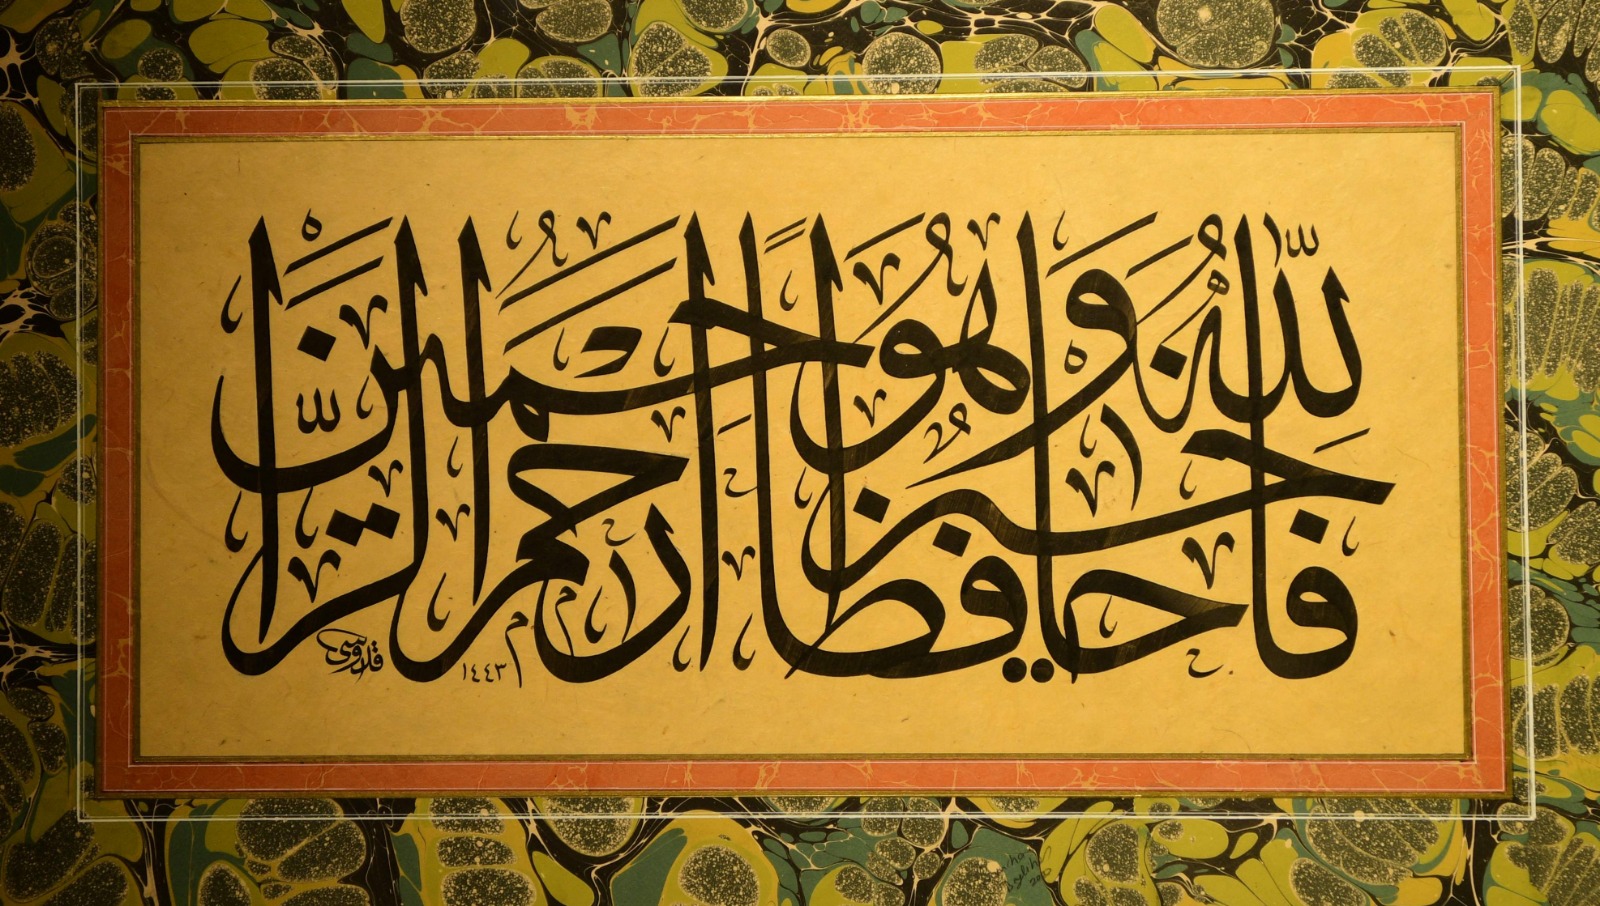 فَاللّٰهُ خَيْرٌ حَافِظًا وَهُوَ أَرْحَمُ الرَّاحِمِينَ
قدوسی ١٤٤٣